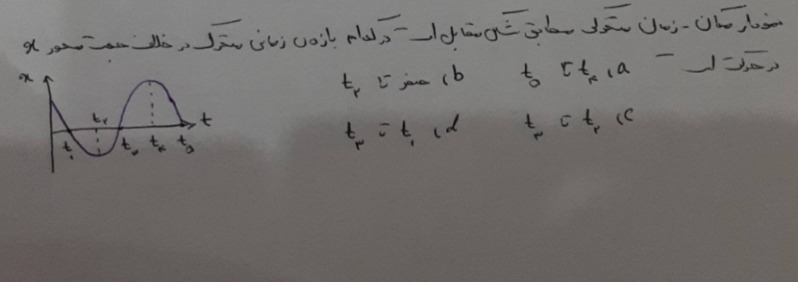 نمودار مکان - زمان متحرکی مطابق شکل مقابل است - در کدام بازه‌ی زمانی متحرک در خلاف جهت محور x
در حرکت است -
a) t₄ تا t₅
b) صفر تا t₂
c) t₂ تا t₃
d) t₁ تا t₃
x
t
t₁
t₂
t₃
t₄
t₅